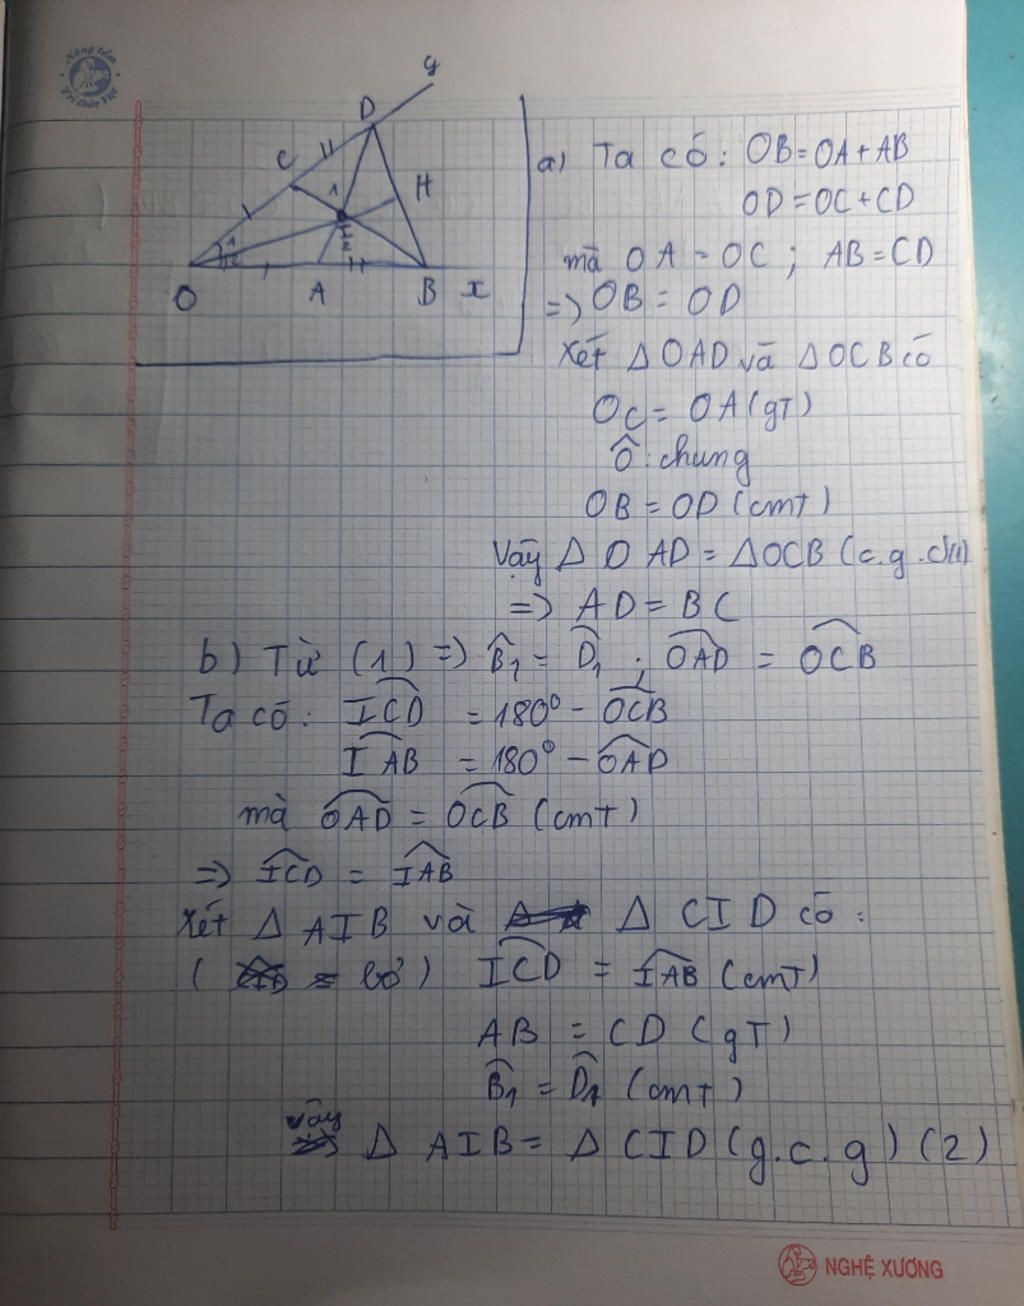 Nâng tầm
Tri thức Việt
y
D
C
H
1
1
2
O
A
B
x
a) Ta có: OB = OA + AB
OD = OC + CD
mà OA = OC ; AB = CD
=> OB = OD
Xét Δ OAD và Δ OCB có
OC = OA (gT)
Ô : chung
OB = OD (cmT)
Vậy Δ OAD = Δ OCB (c.g.c)(1)
=> AD = BC
b) Từ (1) => B̂₁ = D̂₁ ; OAD̂ = OCB̂
Ta có: ICD̂ = 180° - OCB̂
IAB̂ = 180° - OAD̂
mà OAD̂ = OCB̂ (cmT)
=> ICD̂ = IAB̂
Xét Δ AIB và Δ CID có :
( = bỏ) ICD̂ = IAB̂ (cmT)
AB = CD (gT)
B̂₁ = D̂₁ (cmT)
vậy Δ AIB = Δ CID (g.c.g) (2)
NGHỆ XƯƠNG